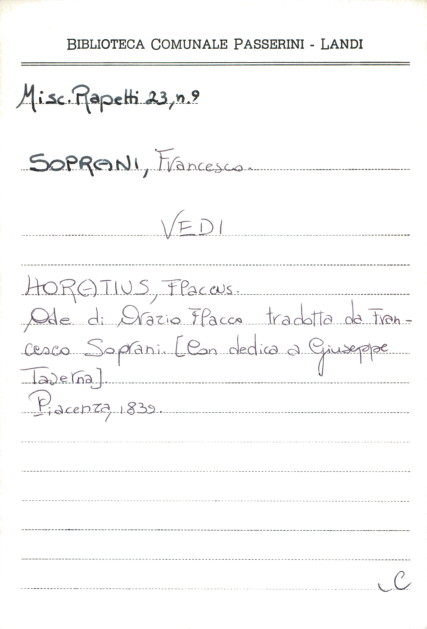 BIBLIOTECA COMUNALE PASSERINI - LANDI
Misc. Rapetti 23, n. 9
SOPRANI, Francesco.
VEDI
HORATIUS, Flaccus.
Ode di Orazio Flacco tradotta da Fran-
cesco Soprani. [Con dedica a Giuseppe
Taverna].
Piacenza, 1839.